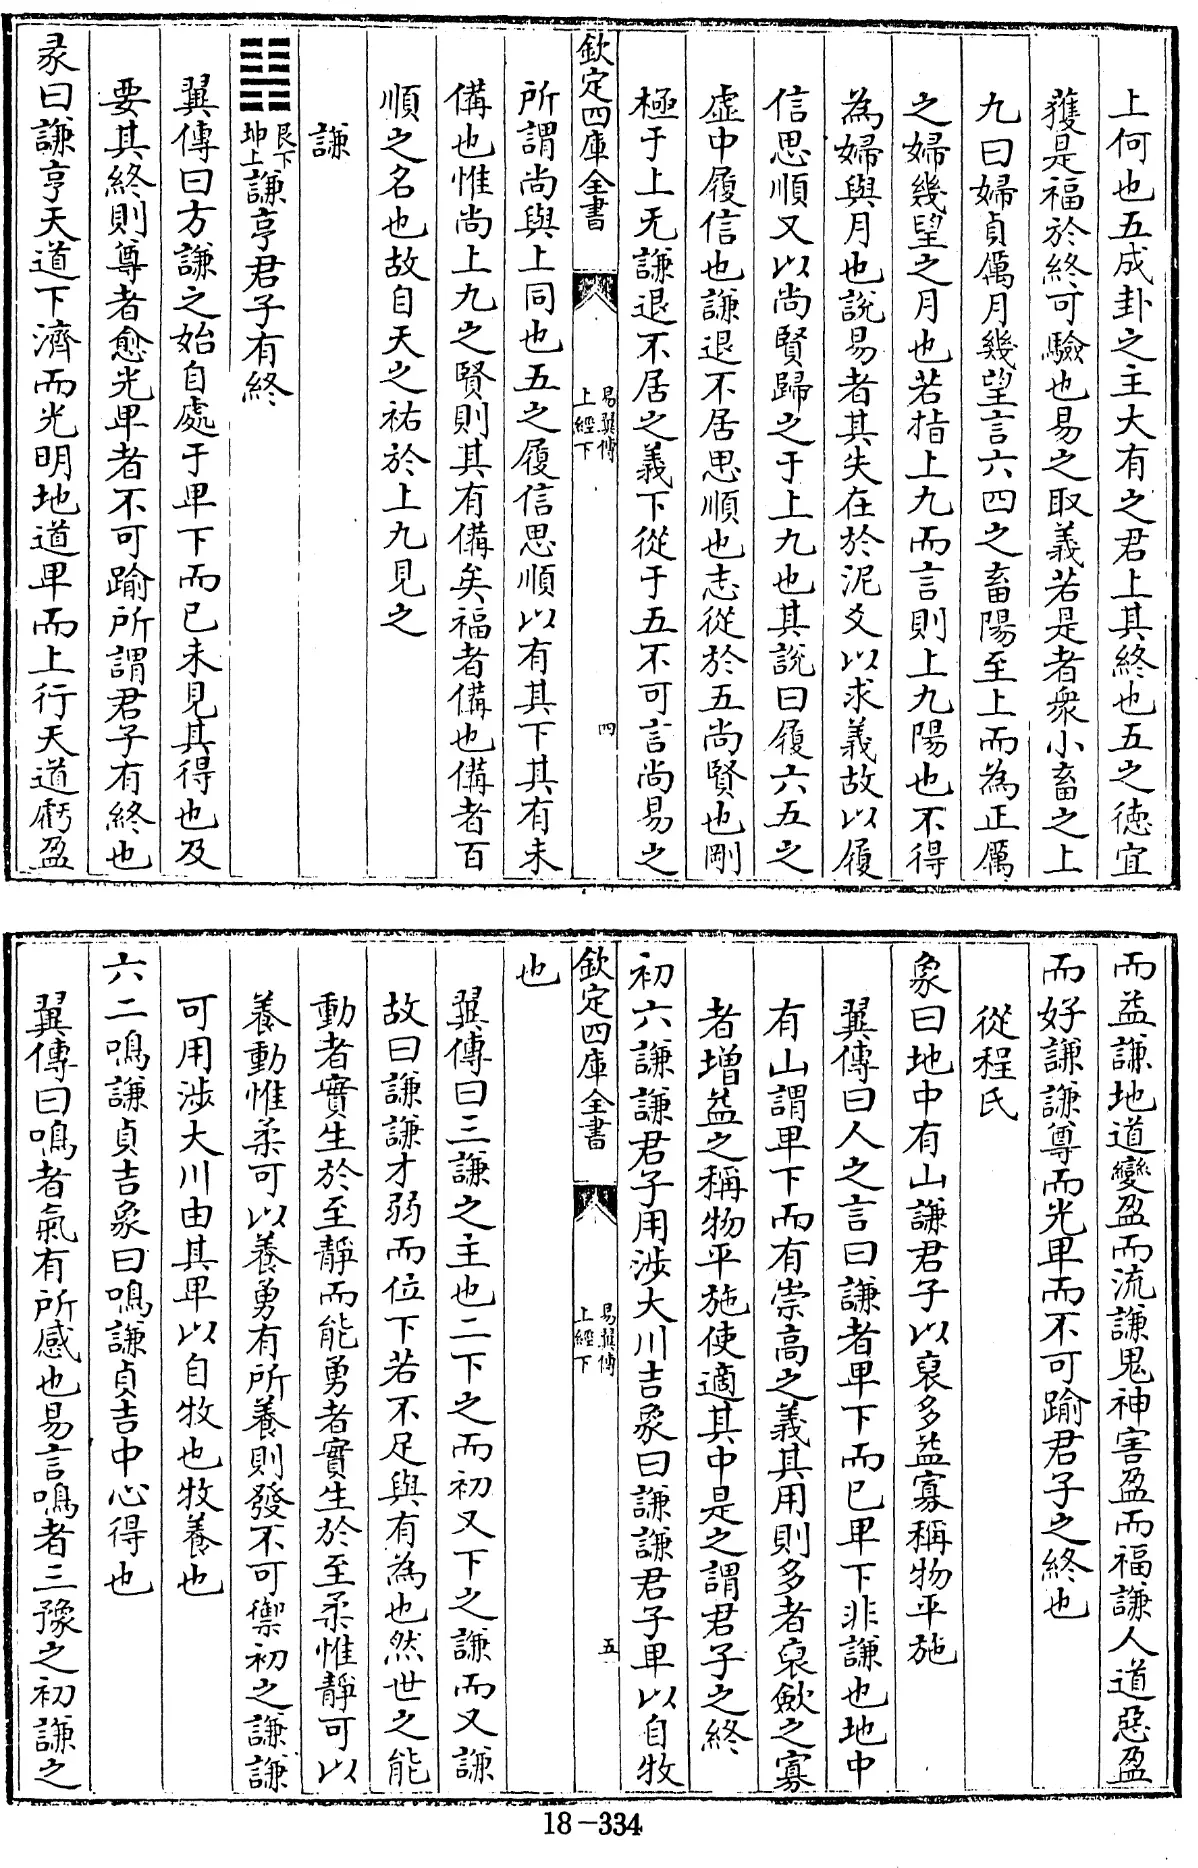 上何也五成卦之主大有之君上其終也五之徳宜
獲是福於終可驗也易之取義若是者衆小畜之上
九曰婦貞厲月幾望言六四之畜陽至上而為正厲
之婦幾望之月也若指上九而言則上九陽也不得
為婦與月也説易者其失在於泥爻以求義故以履
信思順又以尚賢歸之于上九也其説曰履六五之
虚中履信也謙退不居思順也志從於五尚賢也剛
極于上无謙退不居之義下從于五不可言尚易之
欽定四庫全書
易翼傳
上經下
四
所謂尚與上同也五之履信思順以有其下其有未
備也惟尚上九之賢則其有備矣福者備也備者百
順之名也故自天之祐於上九見之
謙
䷎艮下
坤上謙亨君子有終
翼傳曰方謙之始自處于卑下而已未見其得也及
要其終則尊者愈光卑者不可踰所謂君子有終也
彖曰謙亨天道下濟而光明地道卑而上行天道虧盈
而益謙地道變盈而流謙鬼神害盈而福謙人道惡盈
而好謙謙尊而光卑而不可踰君子之終也
從程氏
象曰地中有山謙君子以裒多益寡稱物平施
翼傳曰人之言曰謙者卑下而已卑下非謙也地中
有山謂卑下而有崇高之義其用則多者裒歛之寡
者增益之稱物平施使適其中是之謂君子之終
初六謙謙君子用涉大川吉象曰謙謙君子卑以自牧
欽定四庫全書
易翼傳
上經下
五
也
翼傳曰三謙之主也二下之而初又下之謙而又謙
故曰謙謙才弱而位下若不足與有為也然世之能
動者實生於至靜而能勇者實生於至柔惟靜可以
養動惟柔可以養勇有所養則發不可禦初之謙謙
可用涉大川由其卑以自牧也牧養也
六二鳴謙貞吉象曰鳴謙貞吉中心得也
翼傳曰鳴者氣有所感也易言鳴者三豫之初謙之
18-334